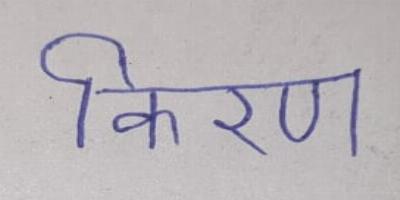 किरण